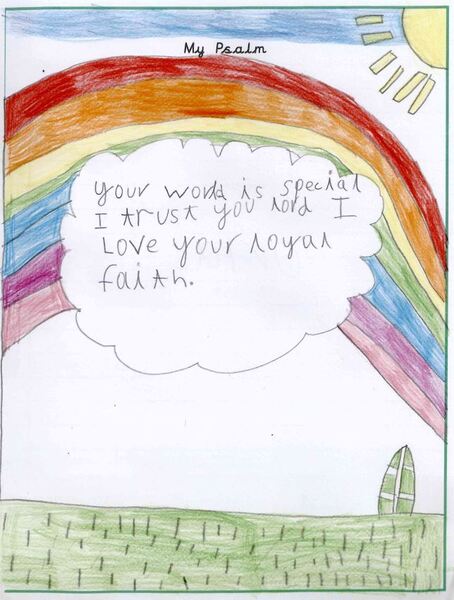 My Psalm
Your world is special
I trust you lord I
Love your loyal
faith.